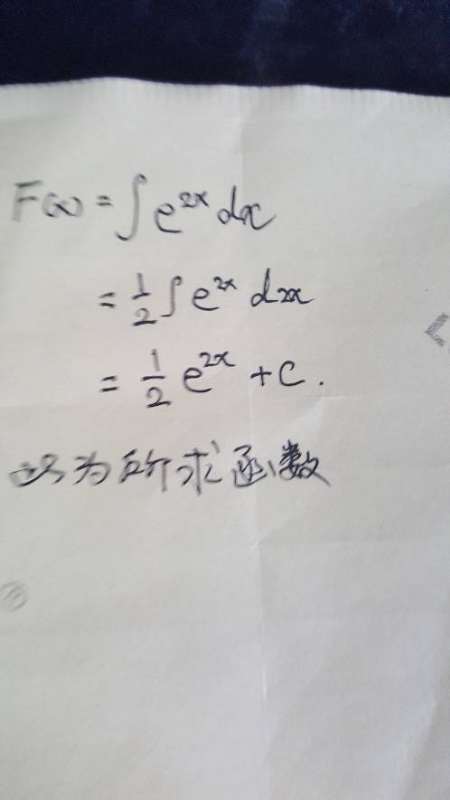 F(x) = ∫ e^{2x} dx
= \frac{1}{2} ∫ e^{2x} d2x
= \frac{1}{2} e^{2x} + C.
为所求函数